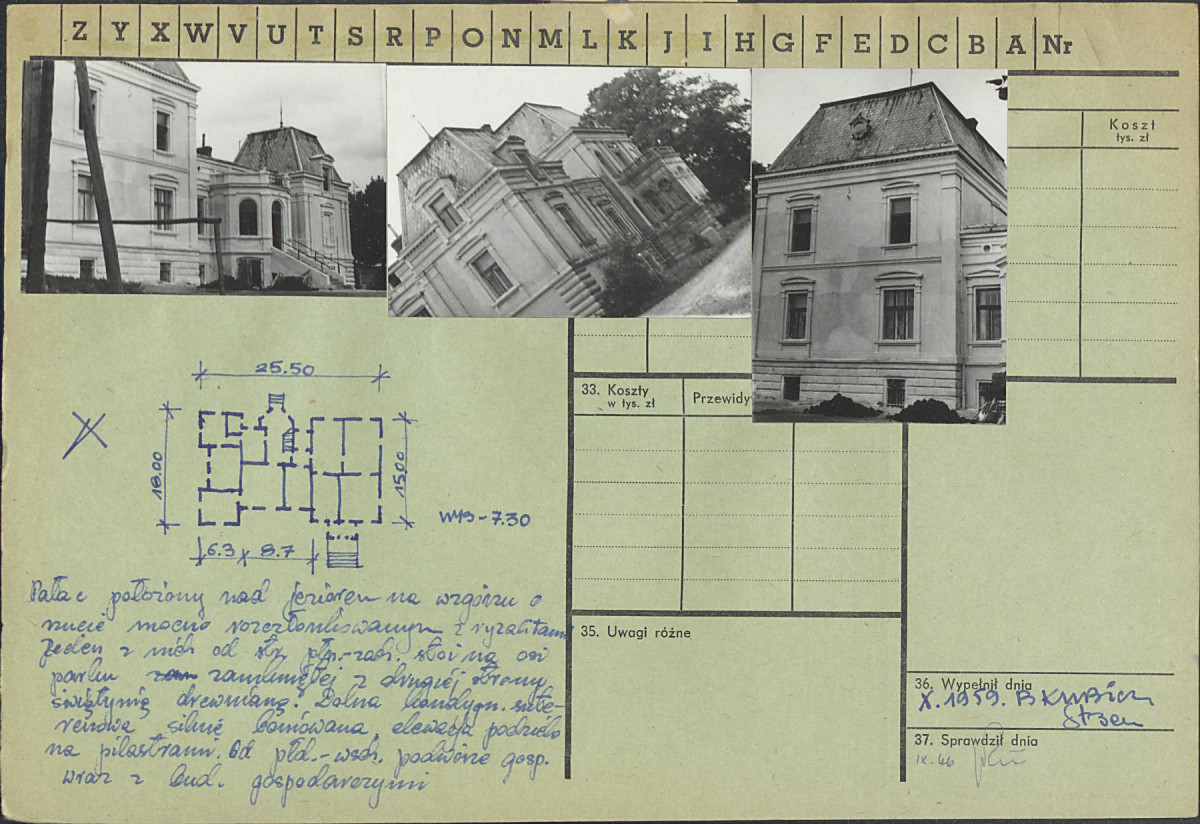 Z Y X W V U T S R P O N M L K J I H G F E D C B A Nr
Koszt
tys. zł
33. Koszty
w tys. zł
Przewidy
25.50
18.00
15.00
6.3 8.7
WYS - 7.30
Pałac położony nad jeziorem na wzgórzu o
rzucie mocno rozczłonkowanym z ryzalitami
Jeden z nich od str. płn.-zach. stoi na osi
parku zamkniętej z drugiej strony
świątynią drewnianą. Dolna kondygn. sute-
renowa silnie boniowana, elewacja podzielo
na pilastrami. Od płd.-wsch. podwórze gosp.
wraz z bud. gospodarczymi
35. Uwagi różne
36. Wypełnił dnia
X. 1959. B Kubicz
37. Sprawdził dnia
IX. 66